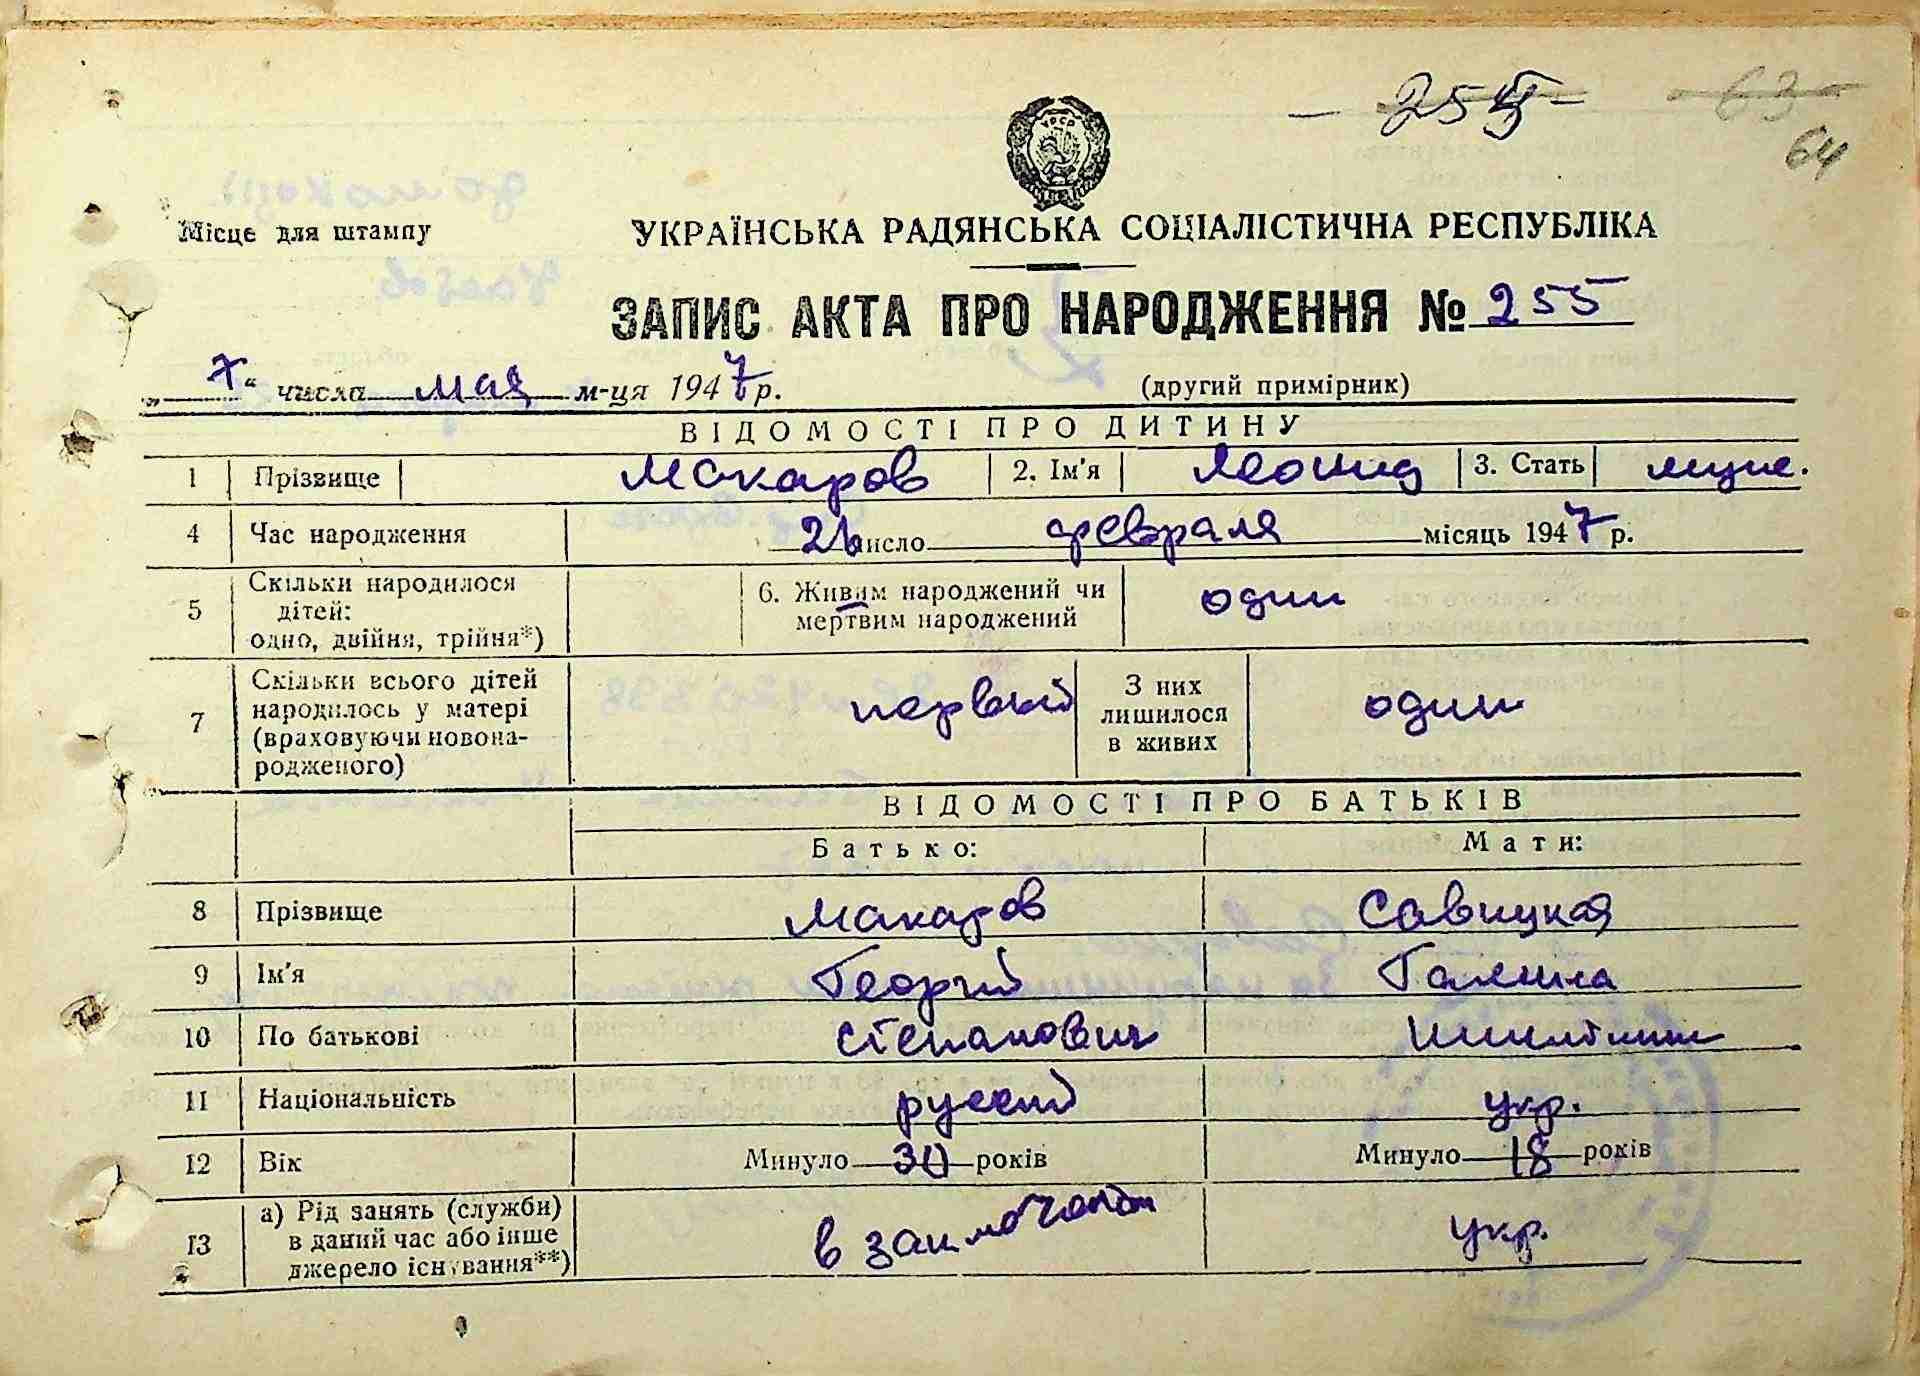 255
63
64
УРСР
Місце для штампу
УКРАЇНСЬКА РАДЯНСЬКА СОЦІАЛІСТИЧНА РЕСПУБЛІКА
ЗАПИС АКТА ПРО НАРОДЖЕННЯ № 255
„7“ числа мая м-ця 1947 р. (другий примірник)
ВІДОМОСТІ ПРО ДИТИНУ
1 Прізвище Макаров 2. Ім'я Леонид 3. Стать муж.
4 Час народження число февраля місяць 1947 р.
5 Скільки народилося дітей: одно, двійня, трійня*) 6. Живим народжений чи мертвим народжений один
7 Скільки всього дітей народилось у матері (враховуючи новонародженого) первый З них лишилося в живих один
ВІДОМОСТІ ПРО БАТЬКІВ
Батько: Мати:
8 Прізвище Макаров Савицкая
9 Ім'я Георгий Галина
10 По батькові Степанович
11 Національність руский укр.
12 Вік Минуло 30 років Минуло 18 років
13 а) Рід занять (служби) в даний час або інше джерело існування**) в укр.